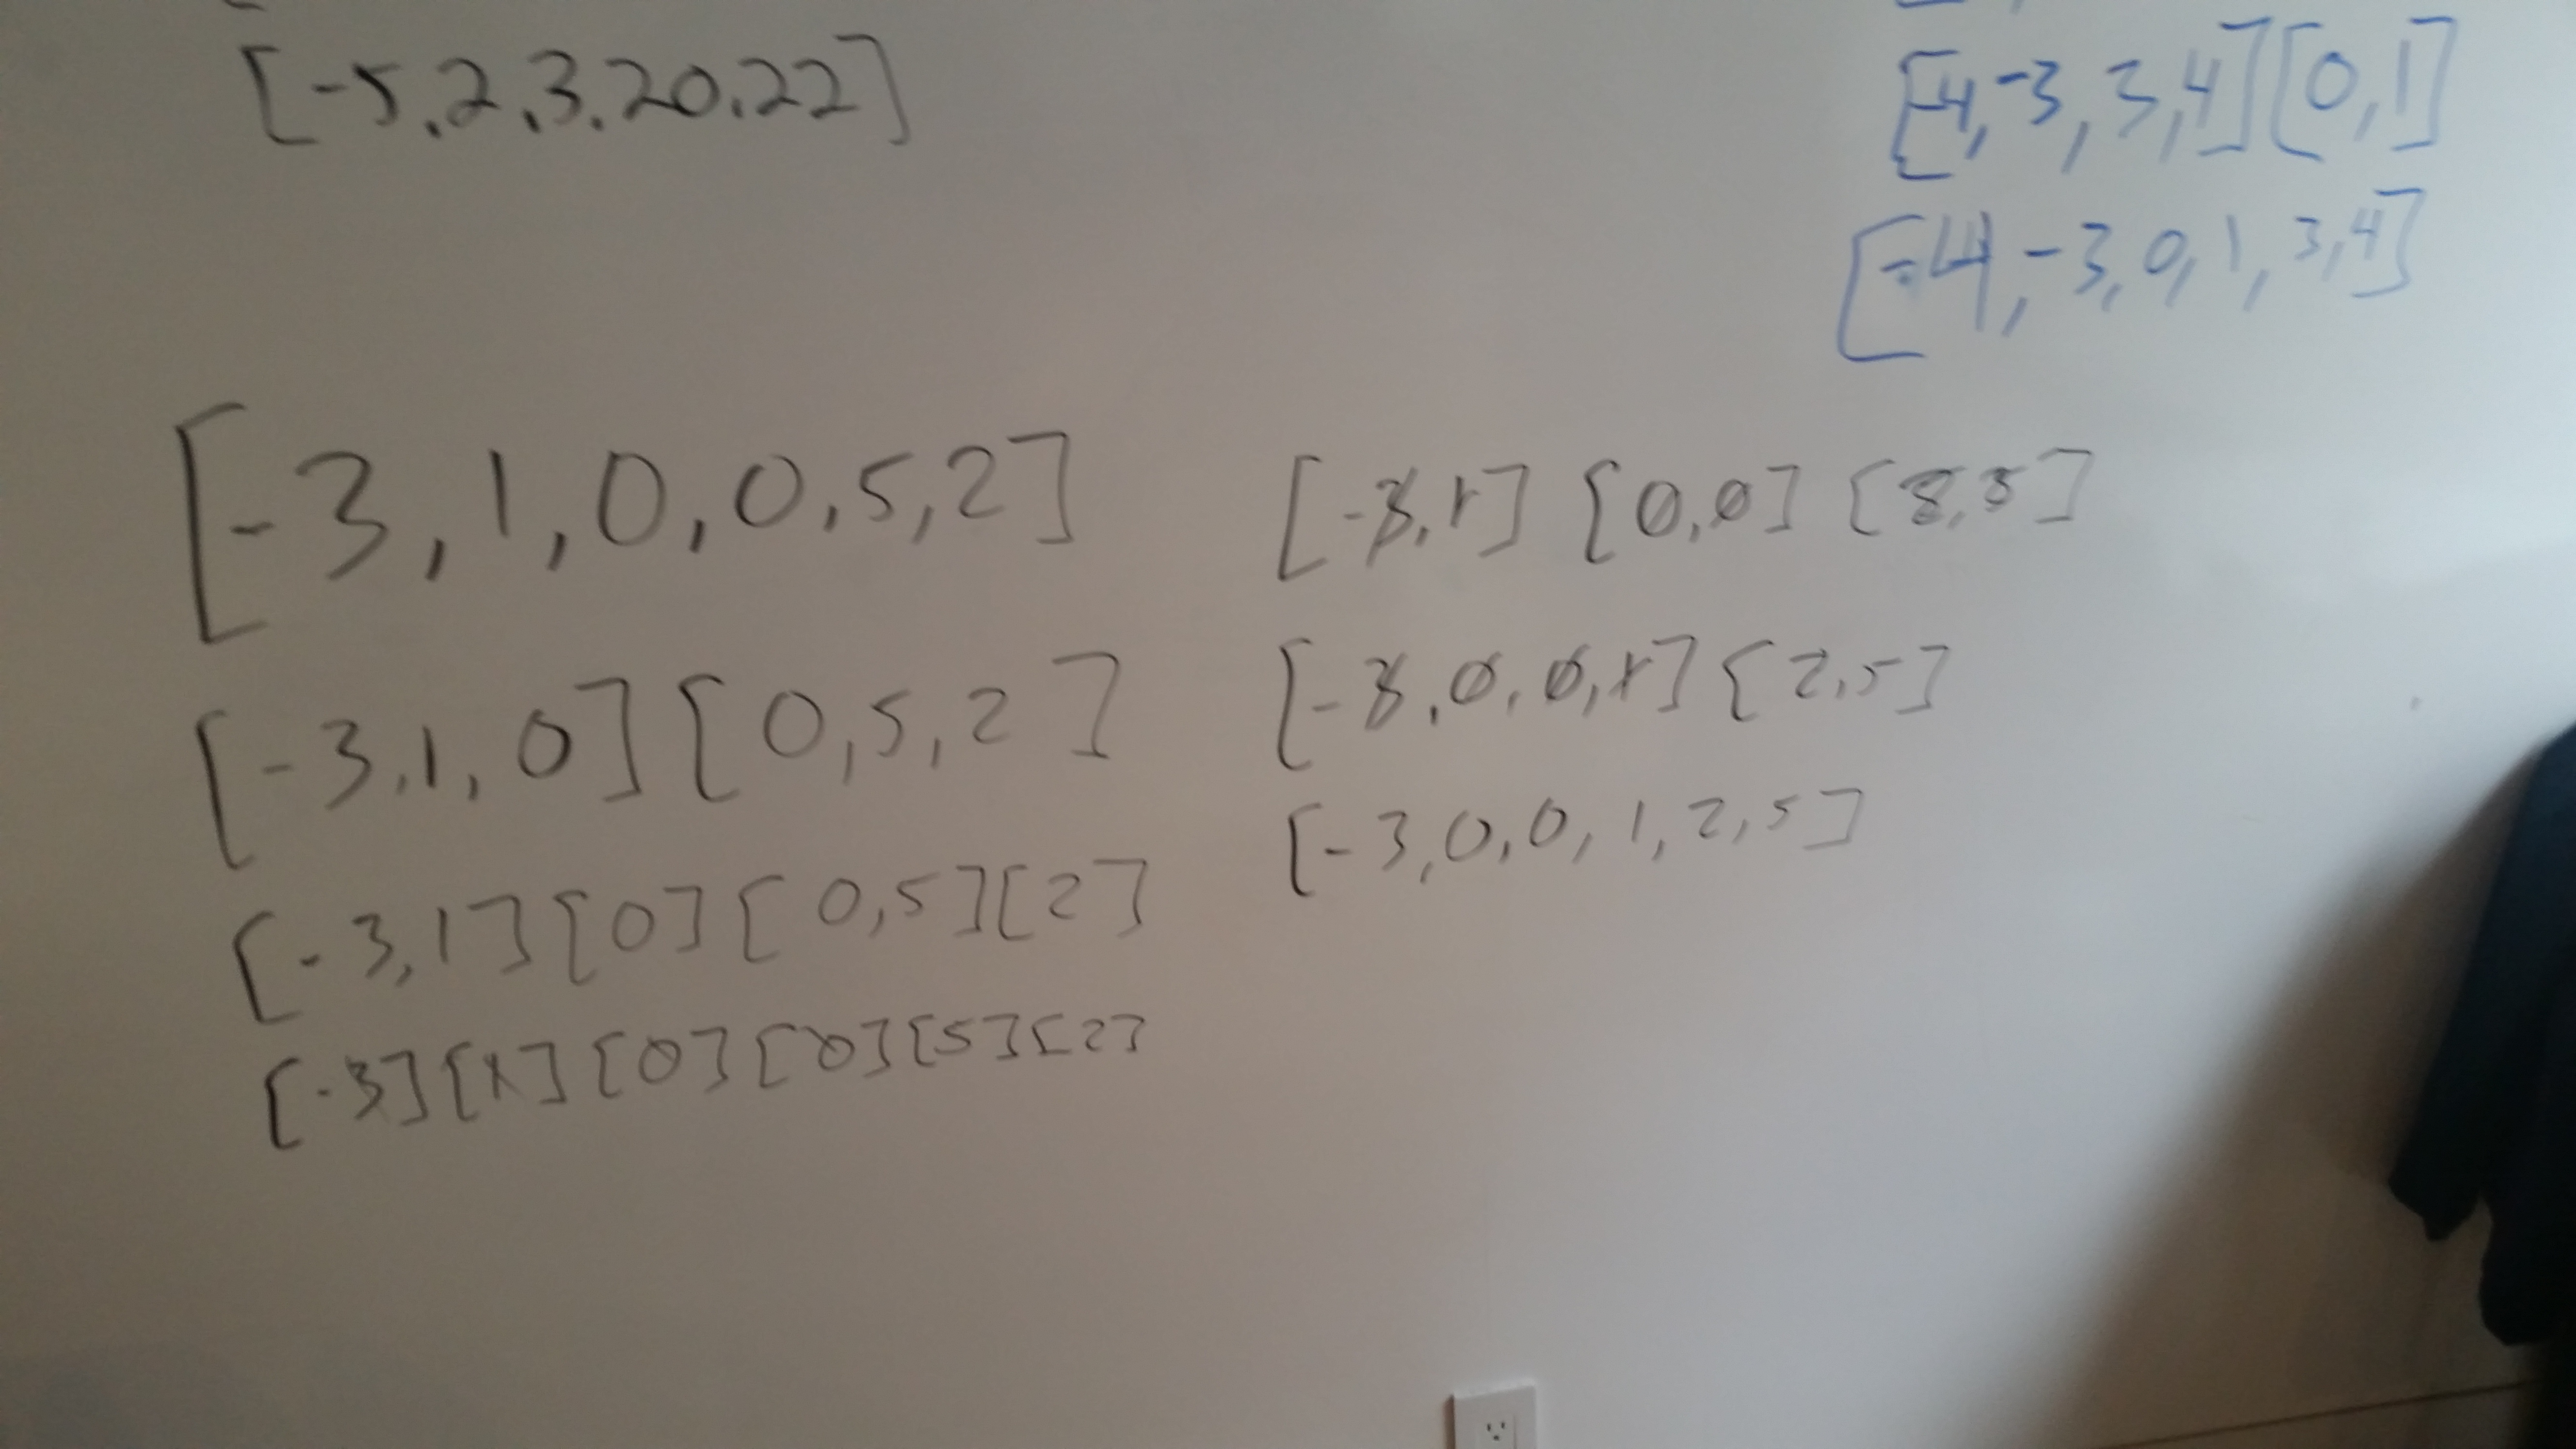 [-5,2,3,20,22]
[-4,-3,3,4][0,1]
[-4,-3,0,1,3,4]
[-3,1,0,0,5,2]
[-3,1,0][0,5,2]
[-3,1][0][0,5][2]
[-3][1][0][0][5][2]
[-3,1][0,0][2,5]
[-3,0,0,1][2,5]
[-3,0,0,1,2,5]